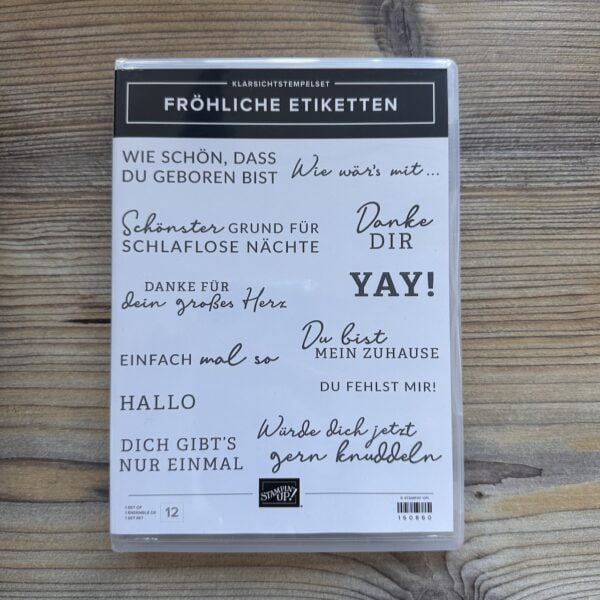 KLARSICHTSTEMPELSET
FRÖHLICHE ETIKETTEN
WIE SCHÖN, DASS
DU GEBOREN BIST
Wie wär's mit ...
Schönster GRUND FÜR
SCHLAFLOSE NÄCHTE
Danke
DIR
DANKE FÜR
dein großes Herz
YAY!
EINFACH mal so
Du bist
MEIN ZUHAUSE
DU FEHLST MIR!
HALLO
DICH GIBT'S
NUR EINMAL
Würde dich jetzt
gern knuddeln
1 SET OF
1 ENSEMBLE DE
1 SET MIT
12
STAMPIN'
UP!
© STAMPIN' UP!
160860